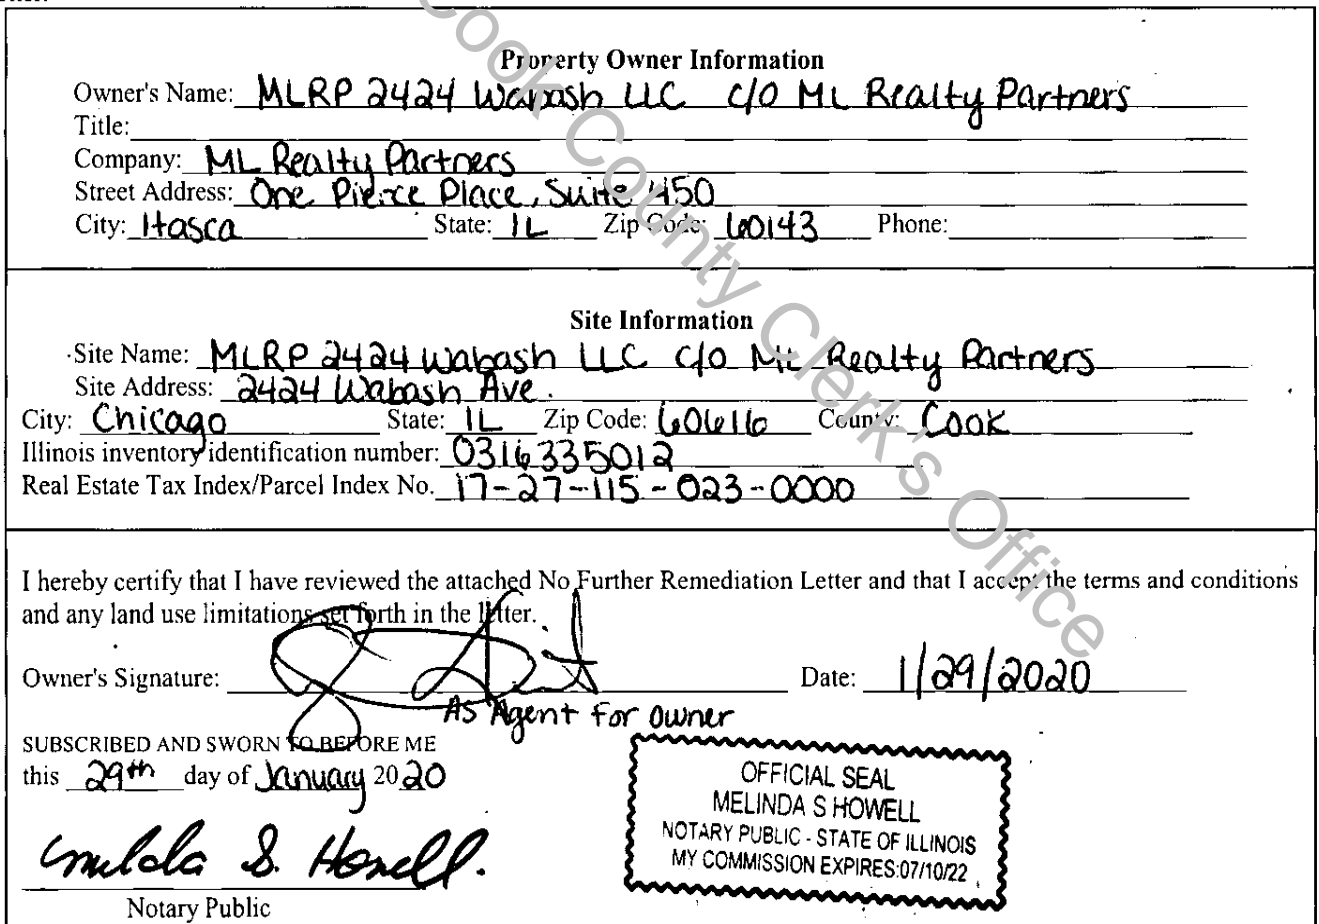 Property Owner Information
Owner's Name: MLRP 2424 Wabash LLC c/o ML Realty Partners
Title:
Company: ML Realty Partners
Street Address: One Pierce Place, Suite 450
City: Itasca State: IL Zip Code: 60143 Phone:
Site Information
Site Name: MLRP 2424 Wabash LLC c/o ML Realty Partners
Site Address: 2424 Wabash Ave.
City: Chicago State: IL Zip Code: 60616 County: Cook
Illinois inventory identification number: 0316335012
Real Estate Tax Index/Parcel Index No. 17-27-115-023-0000
I hereby certify that I have reviewed the attached No Further Remediation Letter and that I accept the terms and conditions
and any land use limitations set forth in the letter.
Owner's Signature: Date: 1/29/2020
As Agent For Owner
SUBSCRIBED AND SWORN TO BEFORE ME
this 29th day of January 2020
OFFICIAL SEAL
MELINDA S HOWELL
NOTARY PUBLIC - STATE OF ILLINOIS
MY COMMISSION EXPIRES:07/10/22
Melinda S. Howell.
Notary Public
Cook County Clerk's Office